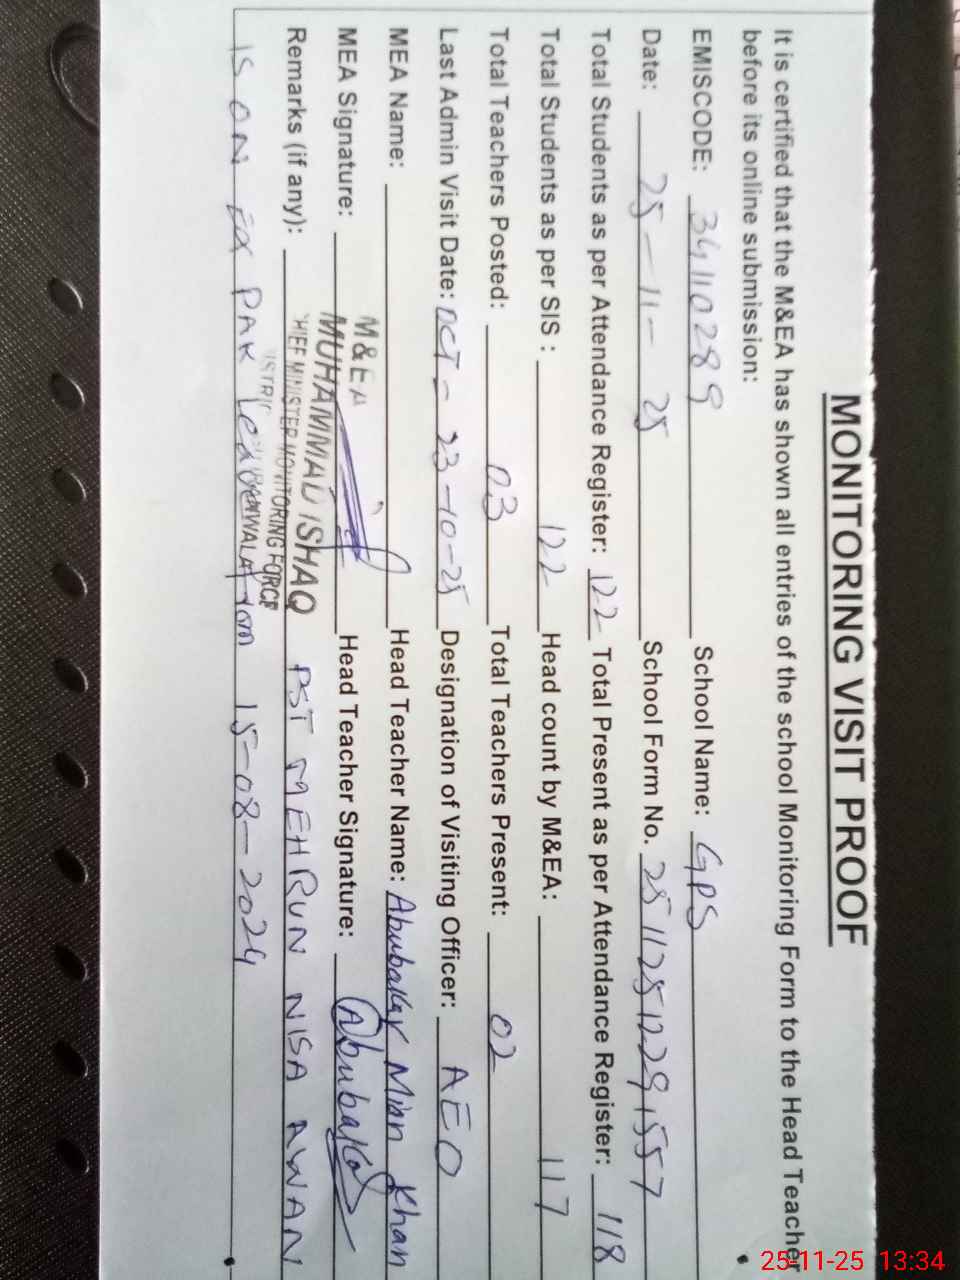 MONITORING VISIT PROOF
It is certified that the M&EA has shown all entries of the school Monitoring Form to the Head Teacher
before its online submission:
EMISCODE: 34110289 School Name: GPS
Date: 25-11-25 School Form No. 2511251229157
Total Students as per Attendance Register: 122 Total Present as per Attendance Register: 118
Total Students as per SIS : 122 Head count by M&EA: 117
Total Teachers Posted: 03 Total Teachers Present: 02
Last Admin Visit Date: OCT - 23-10-25 Designation of Visiting Officer: AEO
MEA Name: Head Teacher Name: Abubakar Mian Khan
MEA Signature: Head Teacher Signature: Abubakar
M&EA
MUHAMMAD ISHAQ
HIEF MINISTER MONITORING FORCE
Remarks (if any): PST MEHRUN NISA AWAN
IS ON EX PAK leave from 15-08-2024
25-11-25 13:34